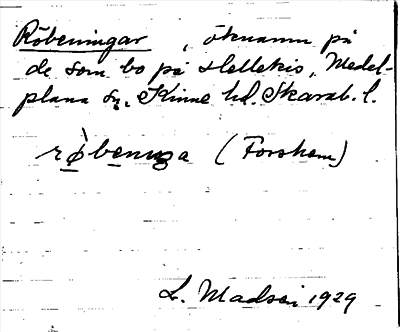 Röbeningar, öknamn på
de som bo på Hellekis, Medel-
plana sn, Kinne hd. Skarab. l.
rø̀benıŋa (Forshem)
L. Madsén 1929